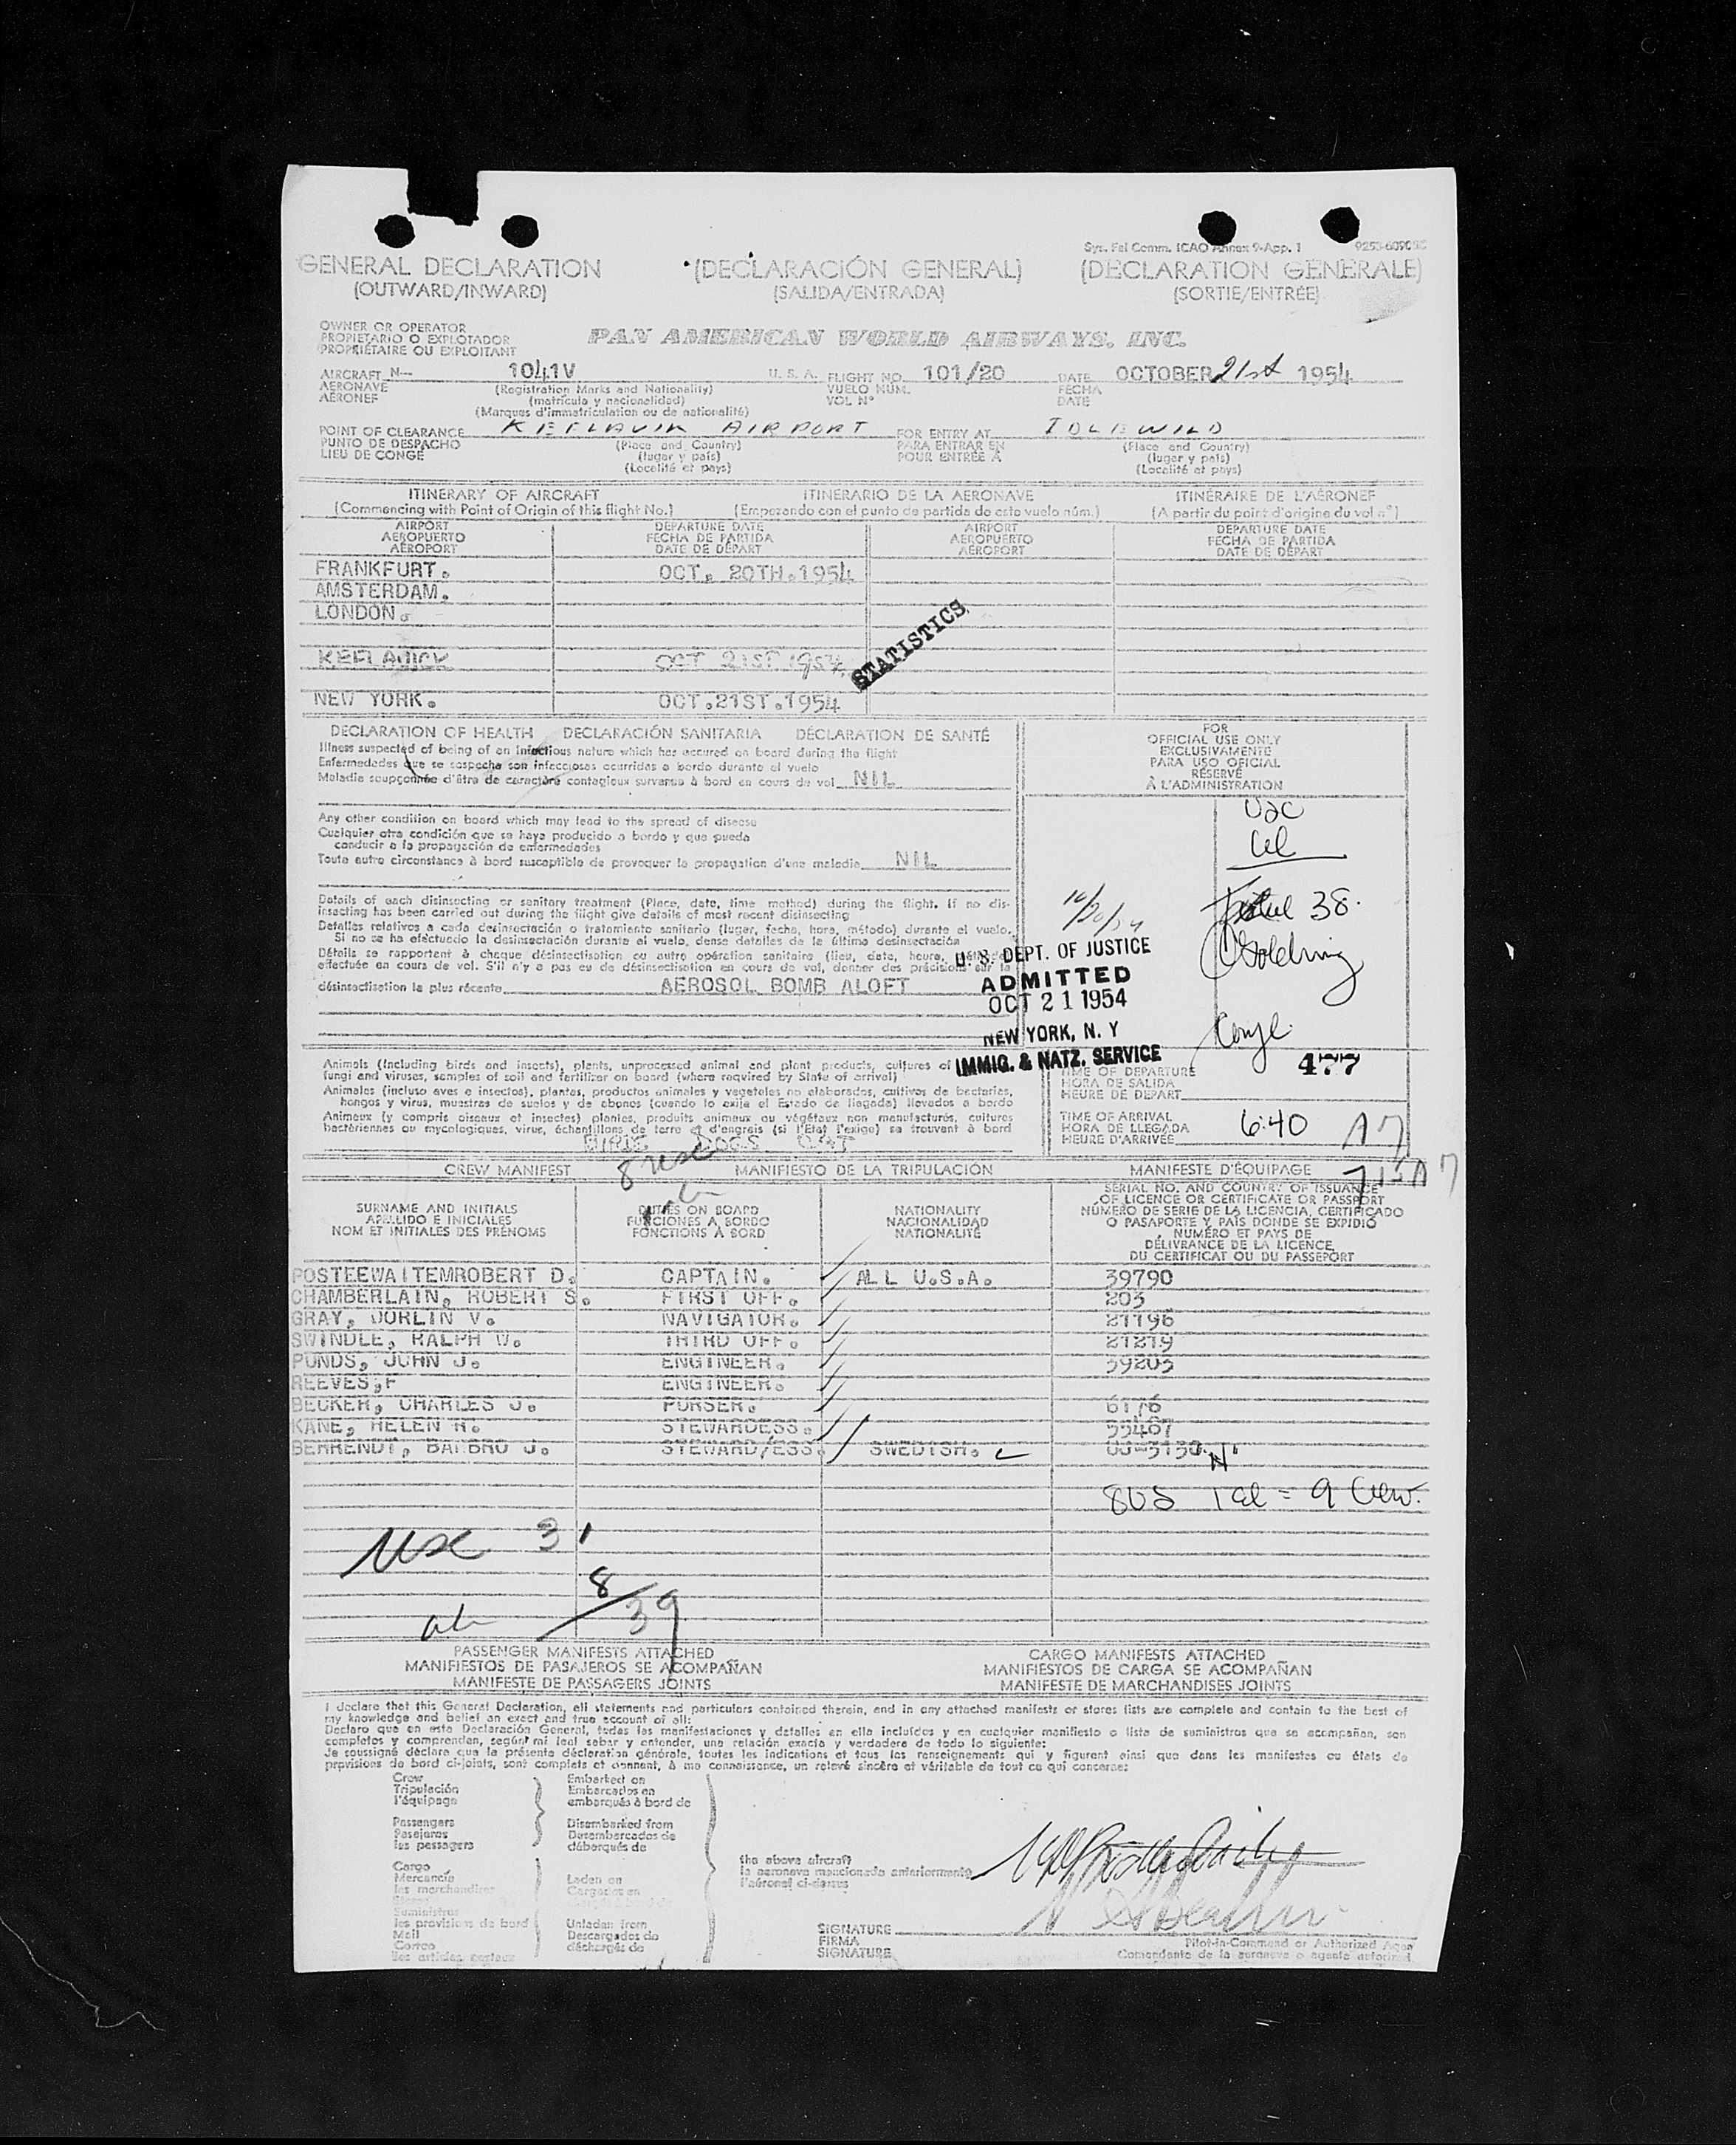 Sys. Fal Comm. ICAO Annex 9-App. 1
GENERAL DECLARATION (DECLARACIÓN GENERAL) (DECLARATION GÉNÉRALE)
(OUTWARD/INWARD) (SALIDA/ENTRADA) (SORTIE/ENTRÉE)
OWNER OR OPERATOR
PROPIETARIO O EXPLOTADOR
PROPRIÉTAIRE OU EXPLOITANT
PAN AMERICAN WORLD AIRWAYS, INC.
AIRCRAFT N— 1041V U. S. A. FLIGHT NO. 101/20 DATE OCTOBER 21st 1954
AERONAVE (Registration Marks and Nationality) VUELO NÚM. FECHA
AÉRONEF (matrícula y nacionalidad) VOL Nº DATE
(Marques d'immatriculation ou de nationalité)
POINT OF CLEARANCE KEFLAVIK AIRPORT FOR ENTRY AT IDLEWILD
PUNTO DE DESPACHO (Place and Country) PARA ENTRAR EN (Place and Country)
LIEU DE CONGÉ (lugar y país) POUR ENTRÉE À (lugar y país)
(Localité et pays) (Localité et pays)
ITINERARY OF AIRCRAFT ITINERARIO DE LA AERONAVE ITINÉRAIRE DE L'AÉRONEF
(Commencing with Point of Origin of this flight No.) (Empezando con el punto de partida de este vuelo núm.) (A partir du point d'origine du vol nº)
AIRPORT DEPARTURE DATE AIRPORT DEPARTURE DATE
AEROPUERTO FECHA DE PARTIDA AEROPUERTO FECHA DE PARTIDA
AÉROPORT DATE DE DÉPART AÉROPORT DATE DE DÉPART
FRANKFURT. OCT. 20TH.1954
AMSTERDAM.
LONDON.
STATISTICS
KEFLAVICK OCT 21ST 1954
NEW YORK. OCT.21ST.1954
DECLARATION OF HEALTH DECLARACIÓN SANITARIA DÉCLARATION DE SANTÉ
Illness suspected of being of an infectious nature which has occured on board during the flight
Enfermedades que se sospecha son infecciosas ocurridas a bordo durante el vuelo
Maladie soupçonnée d'être de caractère contagieux survenue à bord en cours de vol NIL
Any other condition on board which may lead to the spread of disease
Cualquier otra condición que se haya producido a bordo y que pueda
conducir a la propagación de enfermedades
Toute autre circonstance à bord susceptible de provoquer la propagation d'une maladie NIL
Details of each disinsecting or sanitary treatment (Place, date, time method) during the flight. If no dis-
insecting has been carried out during the flight give details of most recent disinsecting
Detalles relativos a cada desinsectación o tratamiento sanitario (lugar, fecha, hora, método) durante el vuelo.
Si no se ha efectuado la desinsectación durante el vuelo, dense detalles de la última desinsectación
Détails se rapportant à chaque désinsectisation ou autre opération sanitaire (lieu, date, heure, méthode)
effectuée en cours de vol. S'il n'y a pas eu de désinsectisation en cours de vol, donner des précisions sur la
désinsectisation la plus récente AEROSOL BOMB ALOFT
FOR
OFFICIAL USE ONLY
EXCLUSIVAMENTE
PARA USO OFICIAL
RÉSERVÉ
À L'ADMINISTRATION
10/20/54
38.
Goldring
U. S. DEPT. OF JUSTICE
ADMITTED
OCT 21 1954
NEW YORK, N. Y
IMMIG. & NATZ. SERVICE
477
Animals (Including birds and insects), plants, unprocessed animal and plant products, cultures of
fungi and viruses, samples of soil and fertilizer on board (where required by State of arrival)
Animales (incluso aves e insectos), plantas, productos animales y vegetales no elaborados, cultivos de bacterias,
hongos y virus, muestras de suelos y de abonos (cuando lo exija el Estado de llegada) llevados a bordo
Animaux (y compris oiseaux et insectes) plantes, produits animaux ou végétaux non manufacturés, cultures
bactériennes ou mycologiques, virus, échantillons de terre & d'engrais (si l'État l'exige) se trouvant à bord
DOGS CAT
TIME OF DEPARTURE
HORA DE SALIDA
HEURE DE DÉPART
TIME OF ARRIVAL
HORA DE LLEGADA 6:40
HEURE D'ARRIVÉE
8 usc
CREW MANIFEST MANIFIESTO DE LA TRIPULACIÓN MANIFESTE D'ÉQUIPAGE
SURNAME AND INITIALS
APELLIDO E INICIALES
NOM ET INITIALES DES PRÉNOMS
DUTIES ON BOARD
FUNCIONES A BORDO
FONCTIONS À BORD
NATIONALITY
NACIONALIDAD
NATIONALITÉ
SERIAL NO. AND COUNTRY OF ISSUANCE
OF LICENCE OR CERTIFICATE OR PASSPORT
NÚMERO DE SERIE DE LA LICENCIA, CERTIFICADO
O PASAPORTE Y PAÍS DONDE SE EXPIDIÓ
NUMÉRO ET PAYS DE
DÉLIVRANCE DE LA LICENCE
DU CERTIFICAT OU DU PASSEPORT
POSTLEWAITEMROBERT D. CAPTAIN. ALL U.S.A. 39790
CHAMBERLAIN, ROBERT S. FIRST OFF. 203
GRAY, DORLIN V. NAVIGATOR. 21196
SWINDLE, RALPH W. THIRD OFF. 21219
PONDS, JOHN J. ENGINEER. 39203
REEVES,F ENGINEER.
BECKER, CHARLES J. PURSER. 6176
KANE, HELEN H. STEWARDESS. 55467
BEHRENDT, BARBRO J. STEWARD/ESS. SWEDISH.
= 9 Crew.
usc 31
8
39
PASSENGER MANIFESTS ATTACHED CARGO MANIFESTS ATTACHED
MANIFIESTOS DE PASAJEROS SE ACOMPAÑAN MANIFIESTOS DE CARGA SE ACOMPAÑAN
MANIFESTE DE PASSAGERS JOINTS MANIFESTE DE MARCHANDISES JOINTS
I declare that this General Declaration, all statements and particulars contained therein, and in any attached manifests or stores lists are complete and contain to the best of
my knowledge and belief an exact and true account of all:
Declaro que en esta Declaración General, todas las manifestaciones y detalles en ella incluídos y en cualquier manifiesto o lista de suministros que se acompañan, son
completos y comprenden, según mi leal saber y entender, una relación exacta y verdadera de todo lo siguiente:
Je soussigné déclare que la présente déclaration générale, toutes les indications et tous les renseignements qui y figurent ainsi que dans les manifestes ou états de
provisions de bord ci-joints, sont complets et donnent, à ma connaissance, un relevé sincère et véritable de tout ce qui concerne:
Crew
Tripulación
l'équipage
Passengers
Pasajeros
les passagers
Cargo
Mercancía
les marchandises
Suministros
les provisions de bord
Mail
Correo
les articles postaux
Embarked on
Embarcados en
embarqués à bord de
Disembarked from
Desembarcados de
débarqués de
Laden on
Cargados en
Unladen from
Descargados de
déchargés de
the above aircraft
la aeronave mencionada anteriormente
l'aéronef ci-dessus
SIGNATURE
FIRMA
SIGNATURE
Pilot-in-Command or Authorized Agent
Comandante de la aeronave o agente autorizado